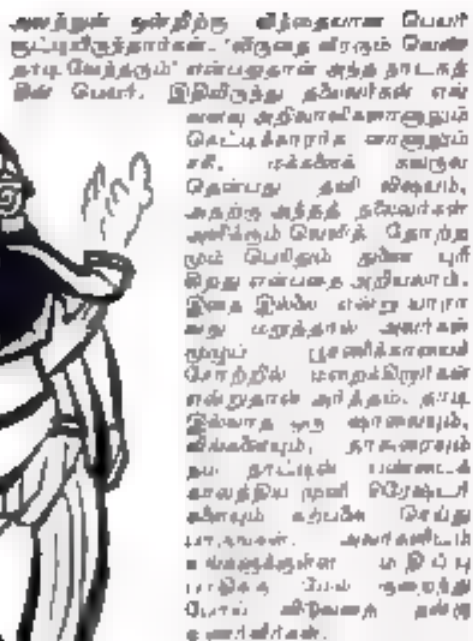 அவற்றுள் ஒன்றிற்கு விந்தையான பெயர்
சூட்டியிருந்தார்கள். 'விருதை வீரரும் வெண்
தாடி வேந்தரும்' என்பதுதான் அந்த நாடகத்
தின் பெயர். இதிலிருந்து தலைவர்கள் எவ்
வளவு அறிவாளிகளானாலும்
கெட்டிக்காரர்க ளானாலும்
சரி, மக்களைக் கவருவ
தென்பது தனி விஷயம்.
அதற்கு அந்தத் தலைவர்கள்
அளிக்கும் வெளித் தோற்ற
மும் பெரிதும் துணை புரி
கிறது என்பதை அறியலாம்.
இதை இல்லை என்று யாரா
வது மறுத்தால் அவர்கள்
முழுப் பூசணிக்காயைச்
சோற்றில் மறைக்கிறார்கள்
என்றுதான் அர்த்தம். தாடி
இல்லாத ஒரு
நம் நாட்டின் பண்டைக்
காலத்திய முனி சிரேஷ்டர்
களையும் கற்பனை செய்து
பாருங்கள். அவர்களிடம்
உங்களுக்குள்ள மதிப்பு
பாதிக்கு மேல் குறைந்து
போய் விடுவதை நன்கு
உணர்வீர்கள்.